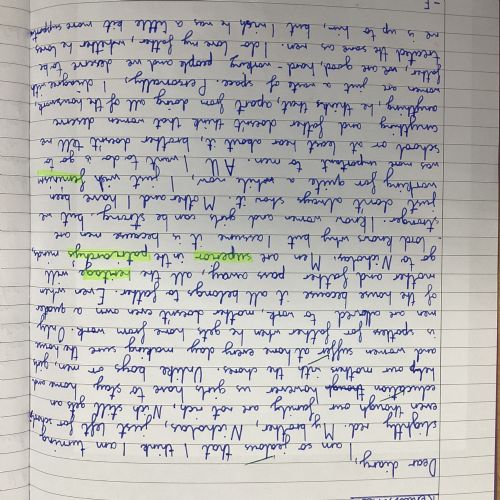 Dear diary,
I am so jealous that I think I am turning
slightly red. My brother, Nicholas, just left for school,
even though our family are not rich, Nich still gets an
education though however us girls have to stay home and
help our mothers with the chores. Unlike boys or men, girls
and women suffer at home every day making sure the house
is spotless for father when he gets home from work. Only
men are allowed to work, mother doesn't even own a quater
of the house because it all belongs to father. Even when
mother and father pass away, all the heritage will
go to Nicholas. Men are superior in the patriarchys minds,
lord knows why but I assume it is because men are
stronger. I know women and girls can be strong, we but
just don't always show it. Mother and I have been
working for quite a while, now, I just wish feminism
was more important to men. All I want to do is go to
school or at least learn about it, brother doesn't tell me
anything and father doesn't think that women deserve
anything, he thinks that, apart from doing all of the housework,
women are just a waste of space. Personally, I disagree with
father, we are good, hard-working people and we deserve to be
treated the same as men. I do love my father, whether he loves
me is up to him, but I wish he was a little bit more supportive
- F